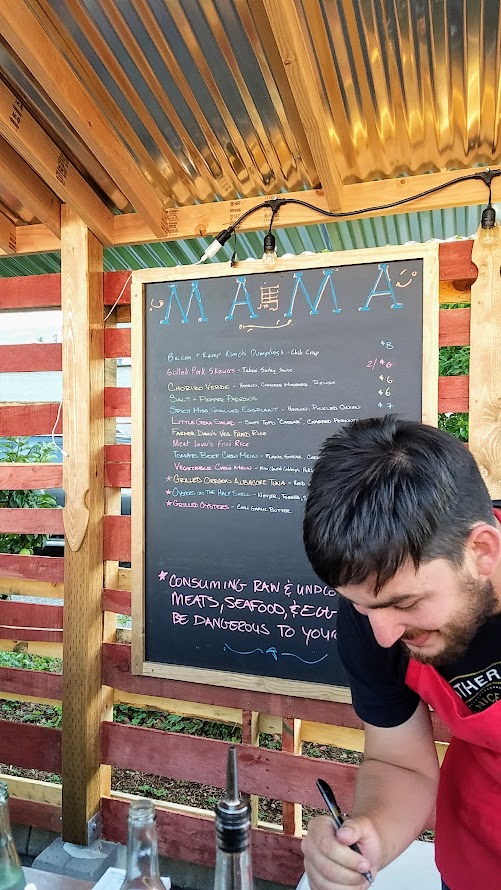 MA馬MA
Bacon + Ramp Kimchi Dumplings - Chili Crisp $8
Grilled Pork Skewers - Tables Smiley Sauce 2/$6
Chorizo Verde - Hominy, Chinese Mustard, Relish $6
Salt + Pepper Padrons $6
Spicy Miso Grilled Eggplant - Hominy, Pickled Onion $7
Little Gem Salad - Soft Tofu "Caesar", Charred Peanuts
Farmer Dave's Veg Fried Rice
Meat Lover's Fried Rice
Tomato Beef Chow Mein - Flank Steak,
Vegetable Chow Mein - Napa Cabbage,
*Grilled Oregon Albacore Tuna -
*Oysters on the Half Shell -
*Grilled Oysters - Chili Garlic Butter
*Consuming raw & underco
meats, seafood, & egg
be dangerous to your
THER